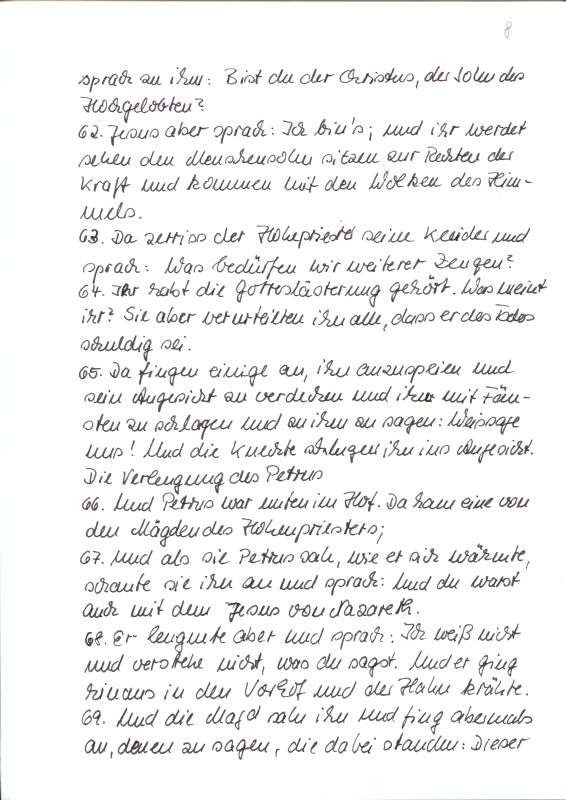 8
sprach zu ihm: Bist du der Christus, der Sohn des
Hochgelobten?
62. Jesus aber sprach: Ich bin's; und ihr werdet
sehen den Menschensohn sitzen zur Rechten der
Kraft und kommen mit den Wolken des Him-
mels.
63. Da zerriss der Hohepriester seine Kleider und
sprach: Was bedürfen wir weiterer Zeugen?
64. Ihr habt die Gotteslästerung gehört. Was meint
ihr? Sie aber verurteilten ihn alle, dass er des Todes
schuldig sei.
65. Da fingen einige an, ihn anzuspeien und
sein Angesicht zu verdecken und ihn mit Fäu-
sten zu schlagen und zu ihm zu sagen: Weissage
uns! Und die Knechte schlugen ihn ins Angesicht.
Die Verleugnung des Petrus
66. Und Petrus war unten im Hof. Da kam eine von
den Mägden des Hohenpriesters;
67. Und als sie Petrus sah, wie er sich wärmte,
schaute sie ihn an und sprach: Und du warst
auch mit dem Jesus von Nazareth.
68. Er leugnete aber und sprach: Ich weiß nicht
und verstehe nicht, was du sagst. Und er ging
hinaus in den Vorhof und der Hahn krähte.
69. Und die Magd sah ihn und fing abermals
an, denen zu sagen, die dabei standen: Dieser